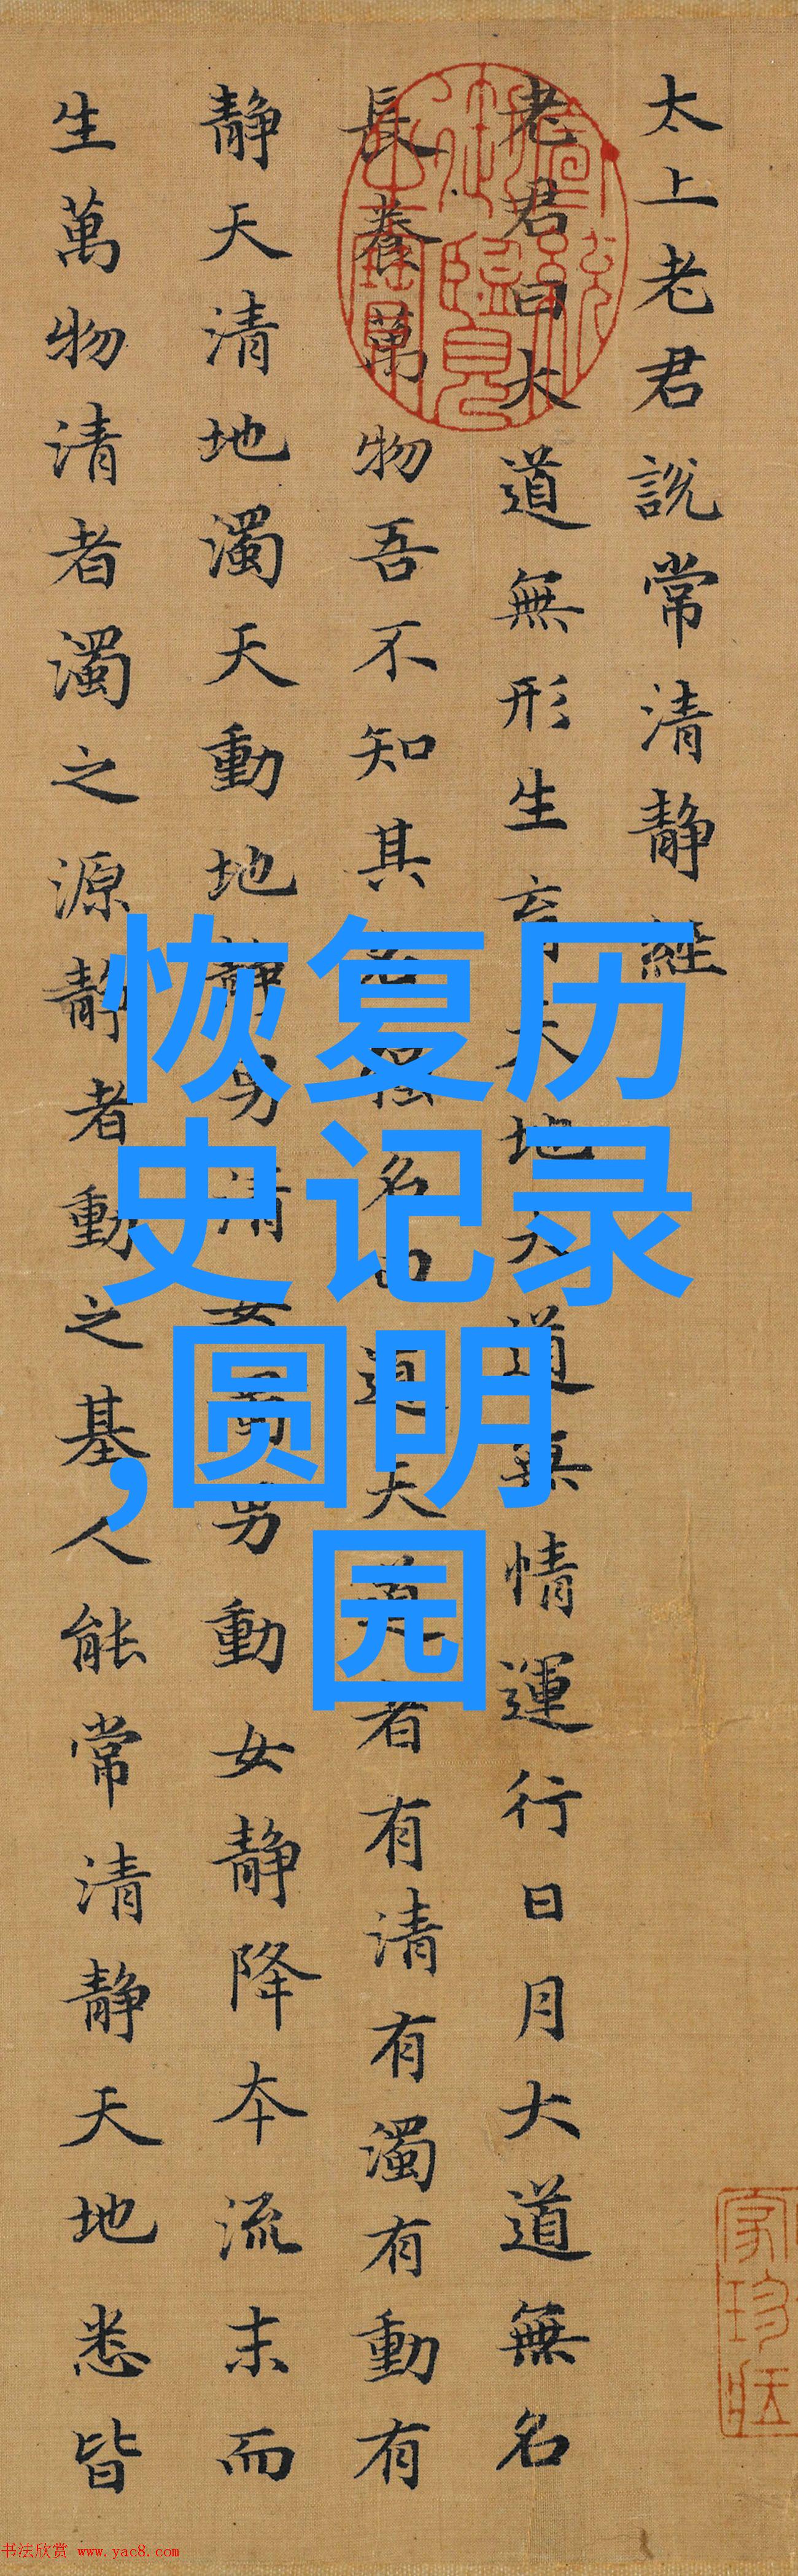 太上老君說常清靜經
老君曰大道無形生育天地大道無情運行日月大道無名
長養萬物吾不知其名強名曰道夫道者有清有濁有動有
靜天清地濁天動地靜男清女濁男動女靜降本流末而
生萬物清者濁之源靜者動之基人能常清靜天地悉皆
恢复历
史记录
,圆明
园
書法欣赏 www.yac8.com